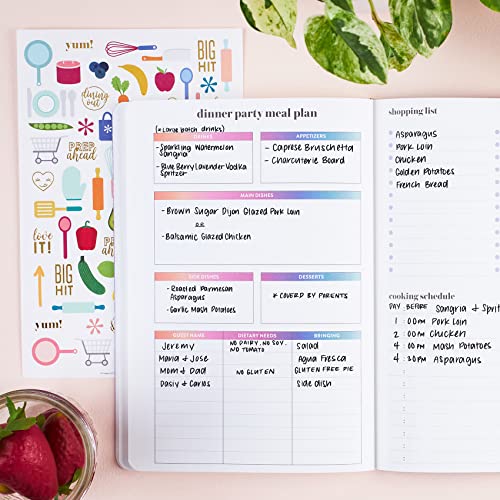 yum!
BIG
HIT
dining
out
PREP
ahead
love
it!
BIG
HIT
yum!
dinner party meal plan
(* Large batch drinks)
DRINKS
- Sparkling Watermelon
Sangria
- Blue Berry Lavender Vodka
Spritzer
APPETIZERS
- Caprese Bruschetta
- Charcuterie Board
MAIN DISHES
- Brown Sugar Dijon Glazed Pork Loin
or
- Balsamic Glazed Chicken
SIDE DISHES
- Roasted Parmesan
Asparagus
- Garlic Mash Potatoes
DESSERTS
* COVERED BY PARENTS
GUEST NAME DIETARY NEEDS BRINGING
Jeremy NO DAIRY, NO SOY, NO TOMATO Salad
Maria & Jose Agua Fresca
Mom & Dad NO GLUTEN GLUTEN FREE PIE
Daisy & Carlos Side dish
shopping list
Asparagus
Pork Loin
Chicken
Golden Potatoes
French Bread
cooking schedule
DAY BEFORE Sangria & Sprit
1:00PM Pork Loin
2:00PM Chicken
4:00PM Mash Potatoes
4:30PM Asparagus